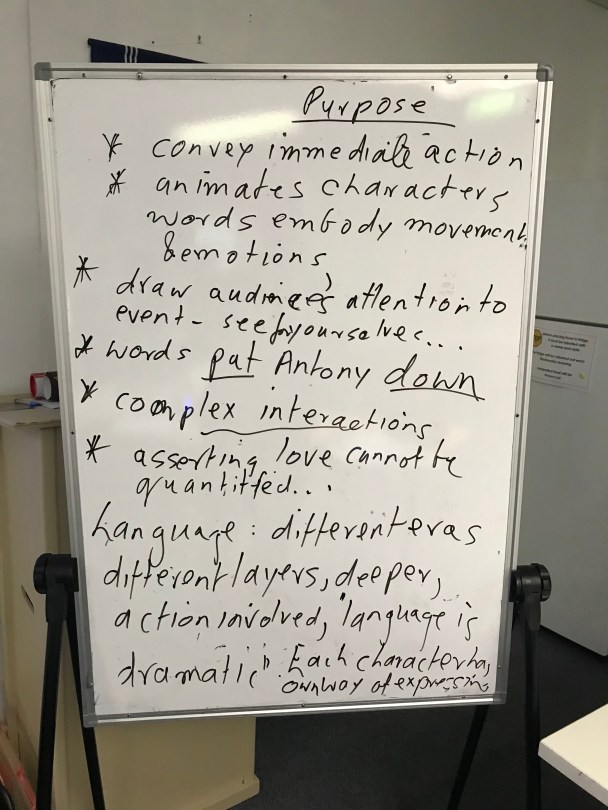 Purpose
* convey immediate action
* animates characters
words embody movement
& emotions
* draw audience's attention to
event - see for yourselves...
* words put Antony down
* complex interactions
* asserting love cannot be
quantified...
Language : different eras
different layers, deeper,
action involved, "language is
dramatic" Each character has
own way of expressing